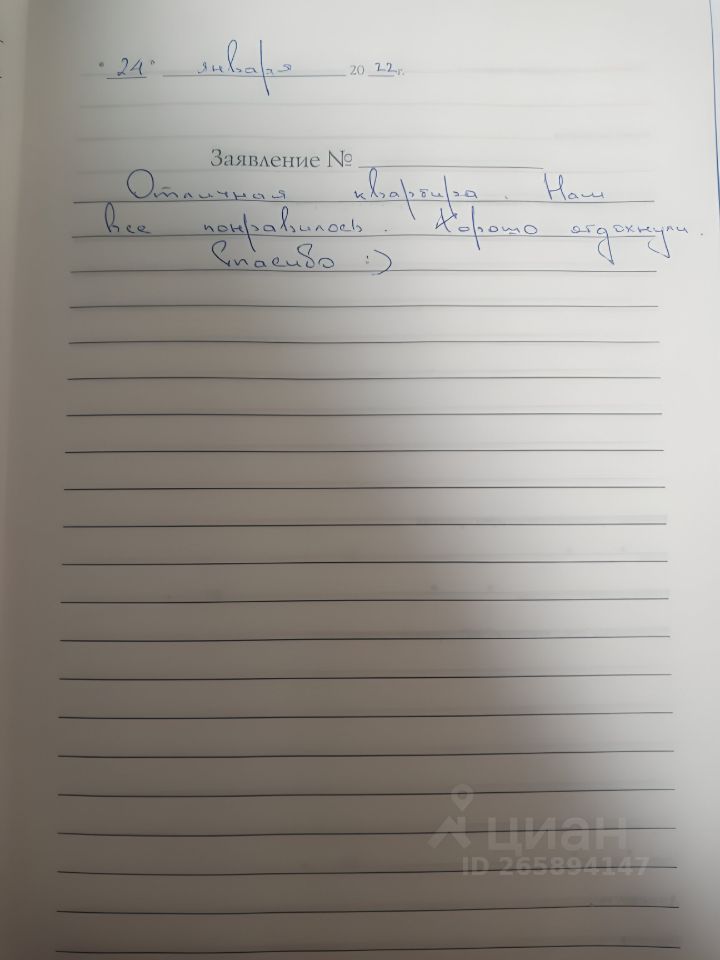 "24" января 2022 г.
Заявление №
Отличная квартира. Нам
все понравилось. Хорошо отдохнули.
Спасибо :)
циан
ID 265894147